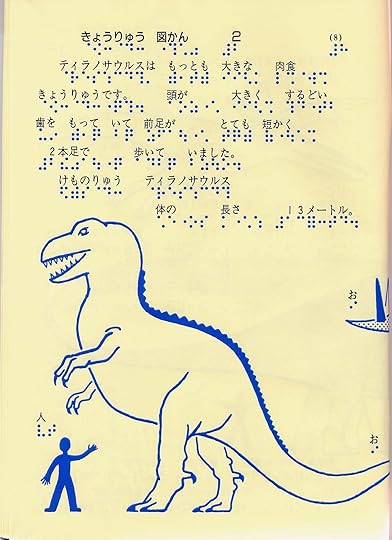 きょうりゅう 図かん 2 (8)
ティラノサウルスは もっとも 大きな 肉食
きょうりゅうです。 頭が 大きく するどい
歯を もって いて 前足が とても 短かく
2本足で 歩いて いました。
けものりゅう ティラノサウルス
体の 長さ 13メートル。
お
人
お